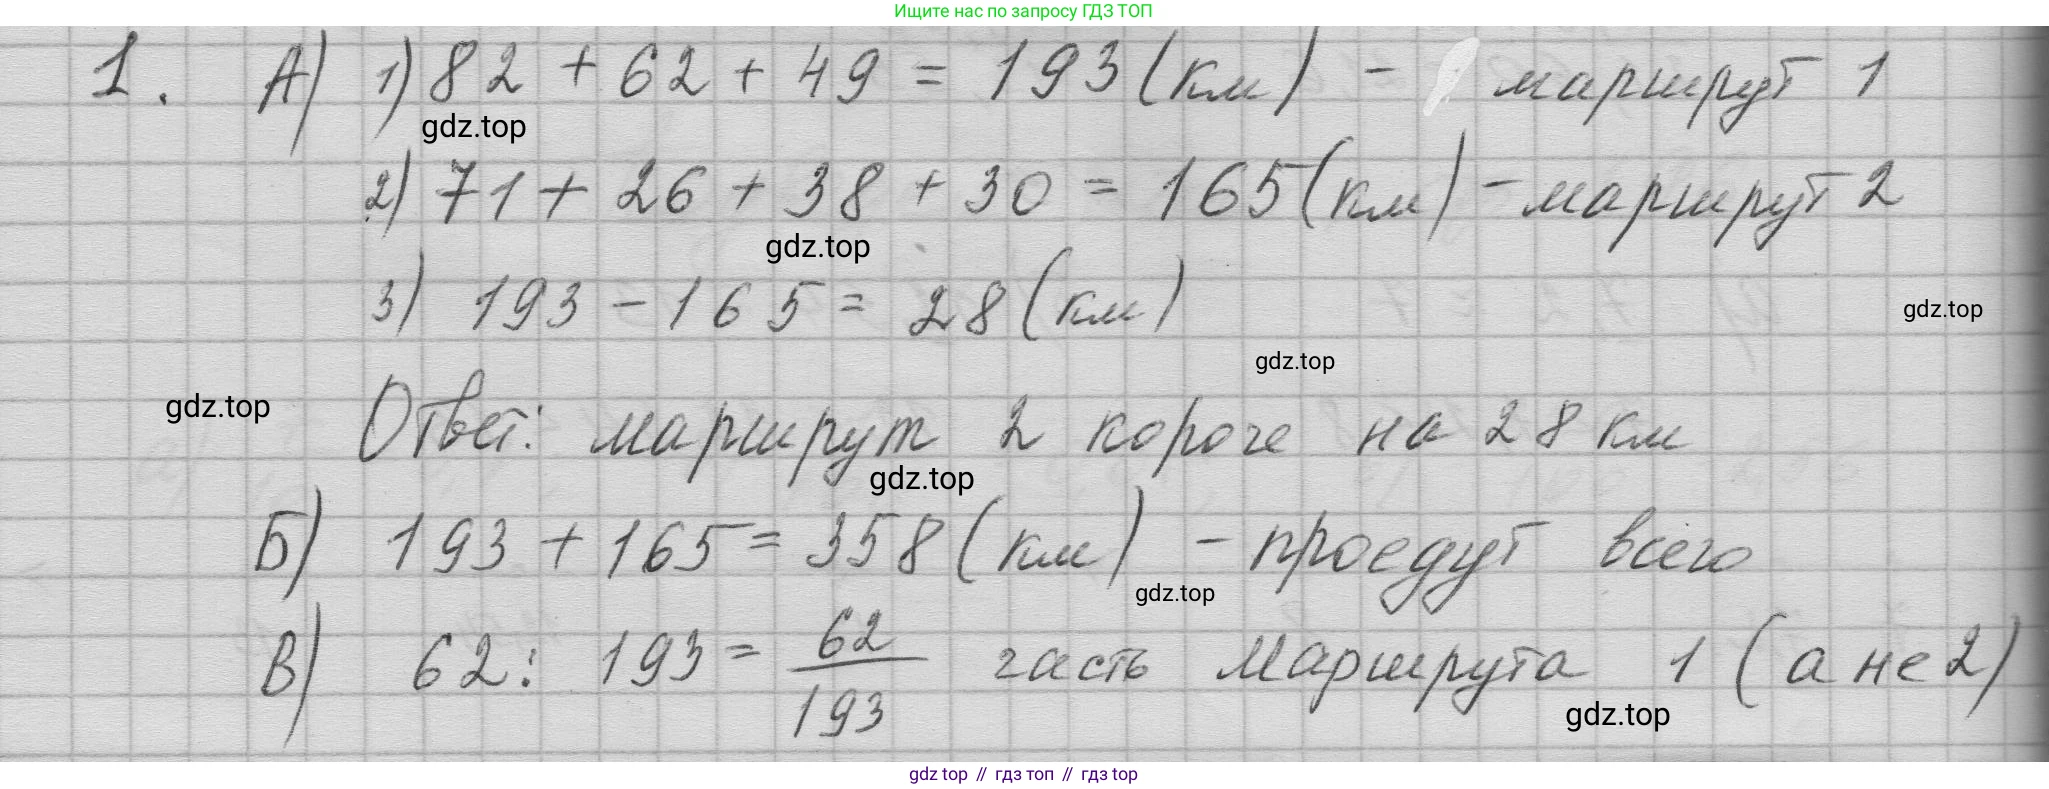 Ищите нас по запросу ГДЗ ТОП
1. А) 1) 82 + 62 + 49 = 193 (км) - маршрут 1
gdz.top
2) 71 + 26 + 38 + 30 = 165 (км) - маршрут 2
gdz.top
3) 193 - 165 = 28 (км)
gdz.top
gdz.top
gdz.top
Ответ: маршрут 2 короче на 28 км
gdz.top
Б) 193 + 165 = 358 (км) - проедут всего
gdz.top
В) 62 : 193 = 62/193 часть маршрута 1 (а не 2)
gdz.top
gdz top // гдз топ // гдз top